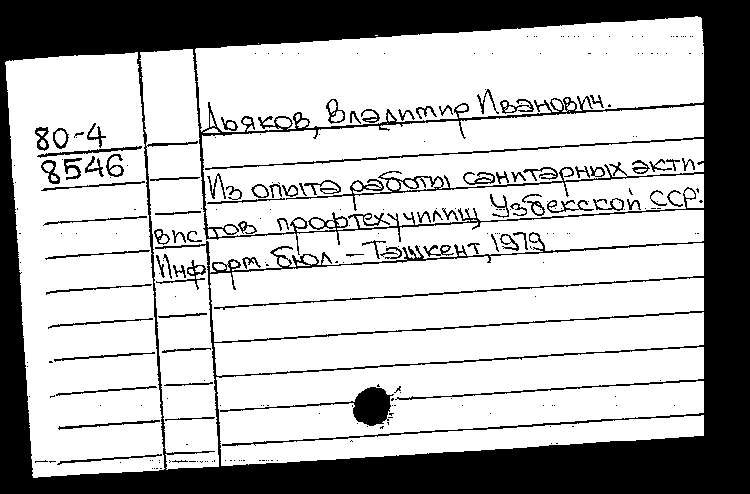 Дьяков, Владимир Иванович.
80-4
8546
Из опыта работы санитарных акти-
вистов профтехучилищ Узбекской ССР:
Информ. бюл. – Ташкент, 1979